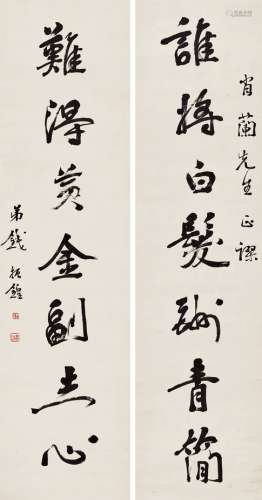 肖蘭先生正謬
誰將白髮酬青簡
難得黃金副赤心
弟錢振鍠